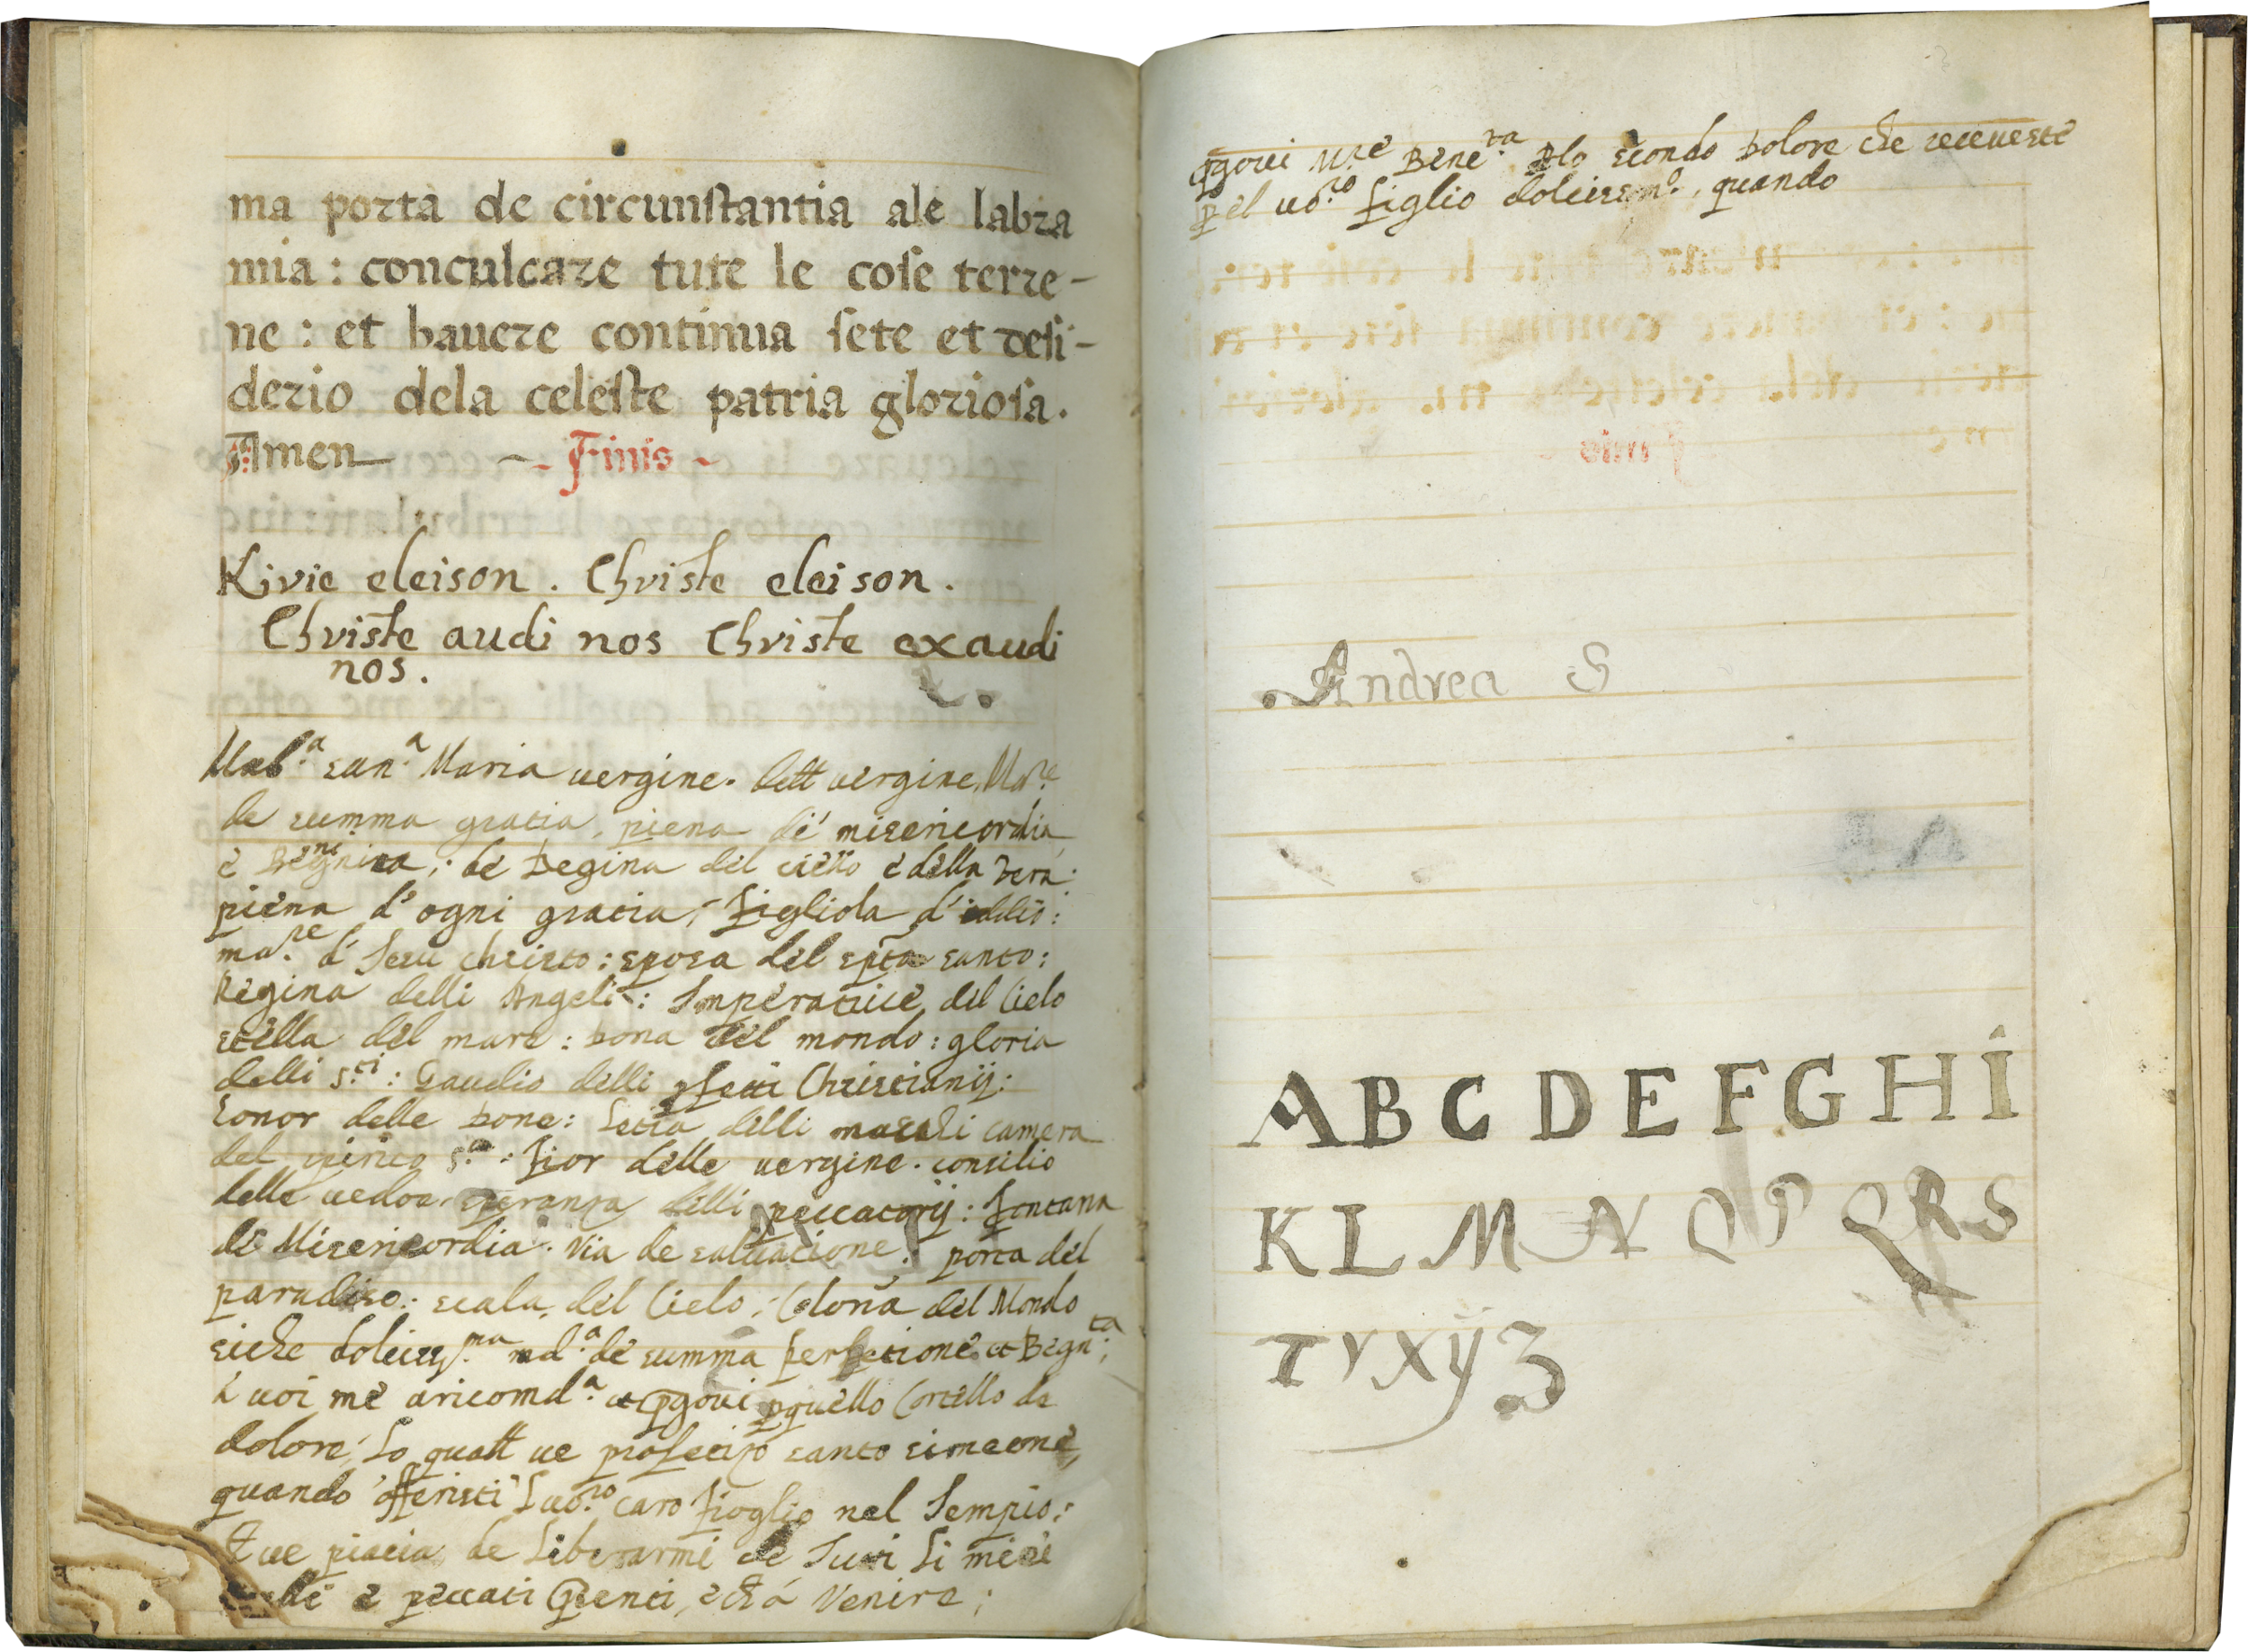 ma porta de circunstantia ale labra
mia : conculcare tute le cose terre-
ne : et havere continua sete et desi-
derio dela celeste patria gloriosa.
Amen - Finis -
Kirie eleison . Christe eleison .
Christe audi nos Christe exaudi
nos .
Mad.ª san.ª Maria vergine. dett vergine, Ma.re
de summa gratia, piena de misericordia
e ; de Regina del ciello e della Tera:
piena d' ogni gratia; figliola d' iddio:
ma.re d' Jesu christo: sposa del spto santo:
Regina delli Angeli: Imperatrice del Cielo
stella del mare : dona del mondo : gloria
delli s.ti : Gaudio delli pfetti Christianij:
honor delle done: delli camera
del spirito s.to : fior delle vergine. consilio
delle vedoa, speranza delli peccatorij: fontana
de Misericordia. Via de salvatione: porta del
paradiso: scala del Cielo: Colona del Mondo
siche dolciss.ma md.ª de summa perfetione et Begn.ta;
à voi me aricomd.ª et pgovi pquello Cortello de
dolore, Lo qualt ve profetizo santo simeone,
quando offeristi L vo.ro caro fioglio nel Tempio:
Et ve piacia de Liberarmi de Tuti Li miei
e peccati Psenti, et à Venire;
pgovi M.re Bene.ta Plo secondo dolore che receveste
pel vo.ro figlio dolciss.mo, quando
Andrea S
A B C D E F G H I
K L M N O P Q R S
T V X Y Z